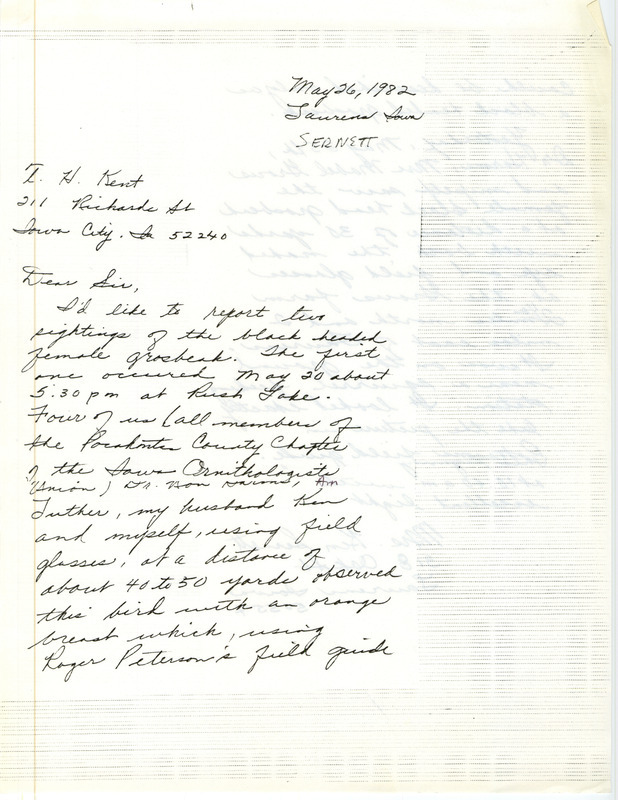 May 26, 1982
Laurens Iowa
SERNETT
T. H. Kent
211 Richards St
Iowa City. Ia 52240
Dear Sir,
I'd like to report two
sightings of the black headed
female grosbeak. The first
one occured May 20 about
5:30 pm at Rush Lake.
Four of us (all members of
the Pocahontas County Chapter
of the Iowa Ornithologists
Union) Dr. Ann
Luther, my husband Ken
and myself, using field
glasses, at a distance of
about 40 to 50 yards observed
this bird with an orange
breast which, using
Roger Peterson's field guide